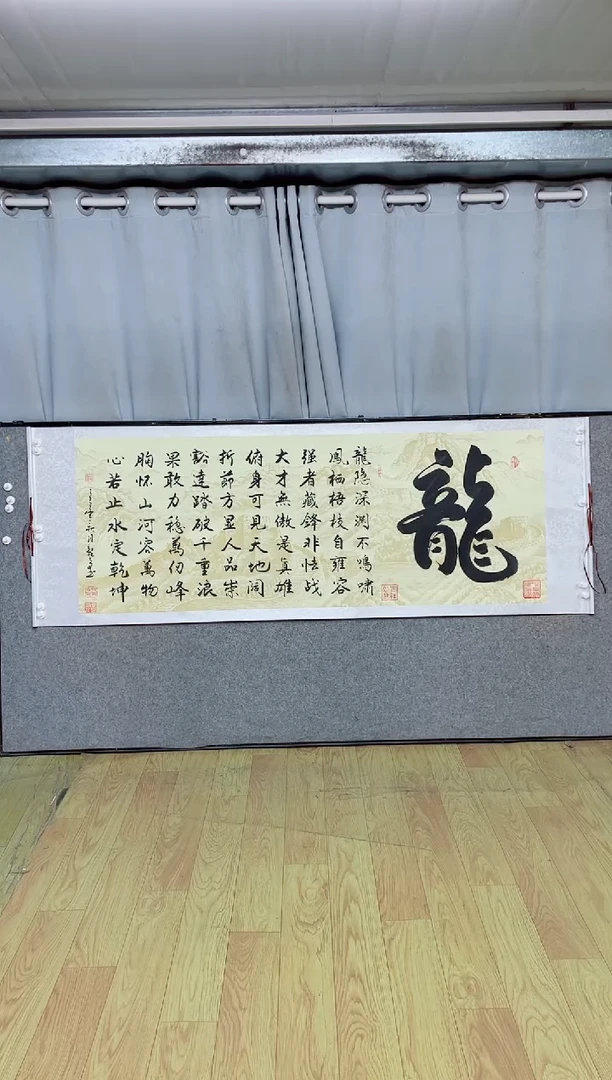 龍
龍隐深渊不鳴啸
鳳栖梧枝自雍容
强者藏鋒非怯战
大才無傲是真雄
俯身可見天地阔
折節方显人品崇
豁達踏破千重浪
果敢力穩萬仞峰
胸怀山河容萬物
心若止水定乾坤